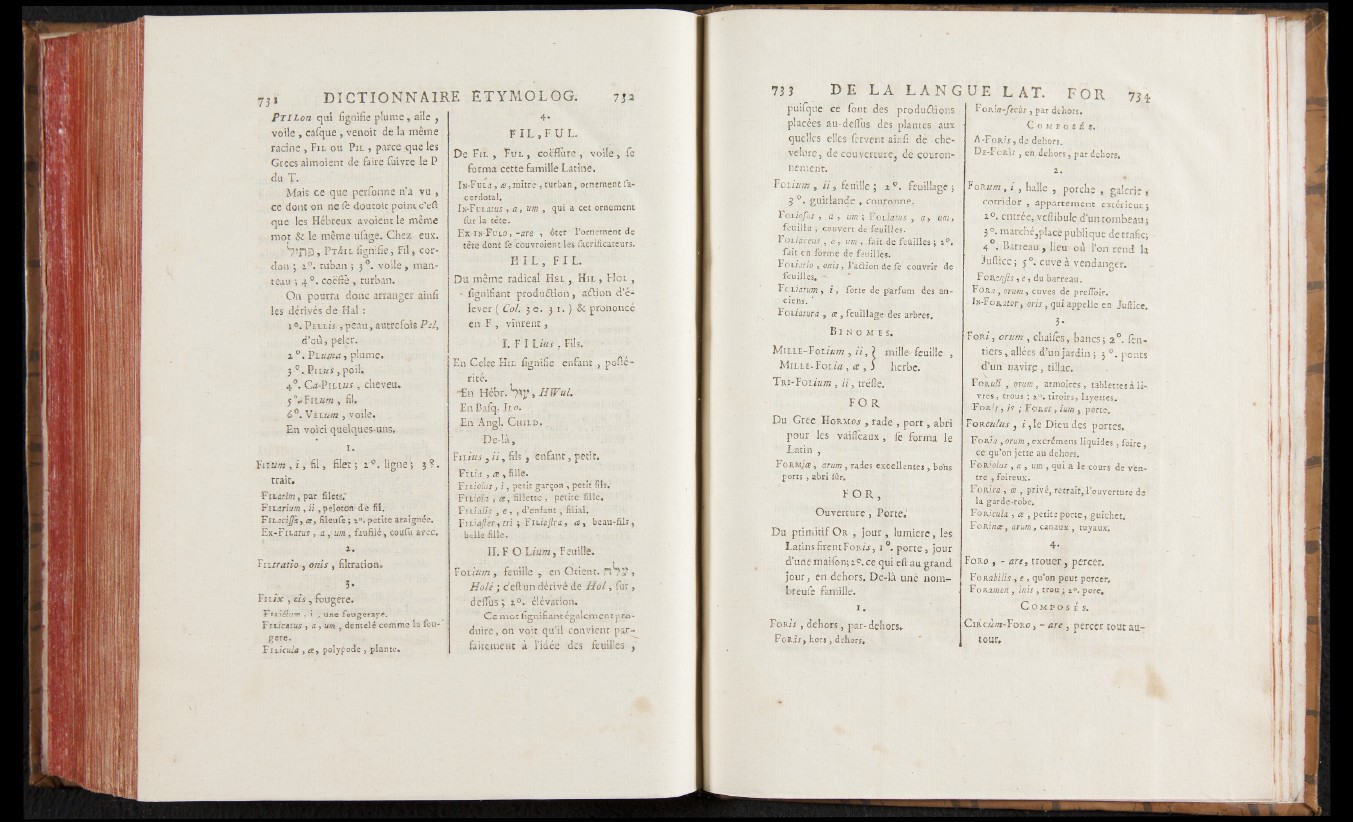 731 DICTIONNAIRE ETYMOLOG. 732
PTILon qui ſignifie plume, aîle,
voile, caſque, venoit de la même
racine, FIL ou PIL, parce que les
Grecs aimoient de faire ſuivre le P
du T.
Mais ce que perſonne n'a vu,
ce dont on ne ſe doutoit point c'eſt
que les Hébreux avoient le même
mot & le même uſage. Chez eux.
פתיל, PTÂIL ſignifie, Fil, cor-
don; 2°. ruban; 3°. voile, man-
teau; 4°. coëffe, turban.
On pourra donc arranger ainſi
les dérivés de Hal:
1°. PELLIS, peau, autrefois Pel,
d'où, peler.
2°. PLuma, plume.
3°. PILus, poil.
4°. Ca-PILLUS, cheveu.
5°. FILum, fil.
6°. VELum, voile.
En voici quelques-uns.
1.
FILum, i, fil, filet; 2°. ligne; 3°.
trait.
FILatim, par filets.
FILarium, ii, peloton de fil.
FILaciſſa, æ, fileuſe; 2°. petite araignée.
EX-FILatus, a, um, faufilé, couſu avec.
2.
FILtratio, onis, filtration.
3.
FILix, cis, fougere.
FILictum, i, une fougeraye.
FILicatus, a, um, dentelé comme la fou-
gere.
FILicula, æ, polypode, plante.
4.
FIL, FUL.
De FIL, FUL, coëffure, voile, ſe
forma cette famille Latine.
IN-FULa, æ, mître, turban, ornement ſa-
cerdotal.
IN-FULatus, a, um, qui a cet ornement
ſur la tête.
EX-IN-FULO, -are, ôter l'ornement de
tête dont ſe couvroient les ſacrificateurs.
HIL, FIL.
Du même radical HEL, HIL, HOL,
ſignifiant production, action d'é-
lever (Col. 30. 31.) & prononcé
en F, vinrent,
I. FILius, Fils.
En Celte HIL ſignifie enfant, poſté-
rité.
En Hébr. עול, HWul.
En Baſq. ILO.
En Angl. CHILD.
De-là,
FILius, ii, fils, enfant, petit.
FILia, æ, fille.
FILiolus, i, petit garçon, petit fils.
FILiola, æ, fillette, petite fille.
FILialis, e, d'enfant, filial.
FILiaſter, tri; FILiaſtra, æ, beau-fils,
belle fille.
II. FOLium, Feuille.
FOLium, feuille, en Orient. עלה,
Holé; c'eſt un dérivé de Hol, ſur,
deſſus; 2°. élévation.
Ce mot ſignifiant également pro-
duire, on voit qu'il convient par-
faitement à l'idée des feuilles,
733 DE LA LANGUE LAT. FOR 734
puiſque ce ſont des productions
placées au-deſſus des plantes aux
quelles elles ſervent ainſi de che-
velure, de couverture, de couron-
nement.
FOLium, ii, feuille; 2°. feuillage;
3°. guirlande, couronne.
FOLioſus, a, um; FOLiatus, a, um,
feuillu, couvert de feuilles.
FOLiaceus, a, um, fait de feuilles; 2°.
fait en forme de feuilles.
FOLiatio, onis, l'action de ſe couvrir de
feuilles.
FOLiatum, i, ſorte de parfum des an-
ciens.
FOLiatura, æ, feuillage des arbres.
BINOMES.
MILLE-FOLium, ii, } mille-feuille,
MILLE-FOLia, æ, } herbe.
TRI-FOLium, ii, tréfle.
FOR
Du Grec HORMOS, rade, port, abri
pour les vaiſſeaux, ſe forma le
Latin,
FORMiæ, arum, rades excellentes, bons
ports, abri ſûr.
FOR,
Ouverture, Porte.
Du primitif OR, jour, lumiere, les
Latins firent FORis, 1°. porte, jour
d'une maiſon; 2°. ce qui eſt au grand
jour, en dehors. De-là une nom-
breuſe famille.
1.
FORis, dehors, par-dehors.
FORàs, hors, dehors.
FORin-ſecùs, par dehors.
COMPOSÉS.
A-FORis, de dehors.
DE-FORis, en dehors, par dehors.
2.
FORum, i, halle, porche, galerie,
corridor, appartement extérieur;
2°. entrée, veſtibule d'un tombeau;
3°. marché, place publique de trafic;
4°. Barreau, lieu où l'on rend la
Juſtice; 5°. cuve à vendanger.
FORenſis, e, du barreau.
FORa, orum, cuves de preſſoir.
IN-FORator, oris, qui appelle en Juſtice.
3.
FORi, orum, chaiſes, bancs; 2°. ſen-
tiers, allées d'un jardin; 3°. ponts
d'un navire, tillac.
FORuli, orum, armoires, tablettes à li-
vres, trous; 2°. tiroirs, layettes.
FORis, is; FORes, ium, porte.
FORculus, i, le Dieu des portes.
FORia, orum, excrémens liquides, foire,
ce qu'on jette au dehors.
FORiolus, a, um, qui a le cours de ven-
tre, foireux.
FORica, æ, privé, retrait, l'ouverture de
la garde-robe.
FORicula, æ, petite porte, guichet.
FORinæ, arum, canaux, tuyaux.
4.
FORO, -are, trouer, percer.
FORabilis, e, qu'on peut percer.
FORamen, inis, trou; 2°. pore.
COMPOSÉS.
CIRCùm-FORO, -are, percer tout au-
tour.